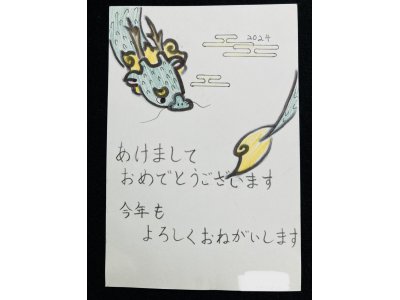 2024
あけまして
おめでとうございます
今年も
よろしくおねがいします